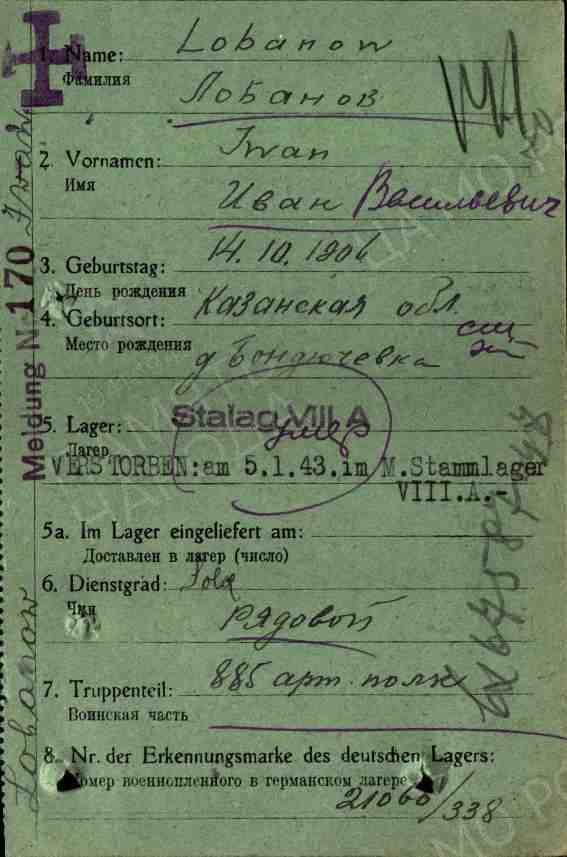 1. Name: Lobanow
Фамилия
Лобанов
2. Vornamen: Iwan
Имя
Иван Васильевич
3. Geburtstag: 14.10.1906
День рождения
4. Geburtsort: Казанская обл.
Место рождения
д Бондючевка
5. Lager: Stalag VIII A
Лагерь
умер
VERSTORBEN: am 5.1.43.im M.Stammlager
VIII.A.-
5a. Im Lager eingeliefert am:
Доставлен в лагерь (число)
6. Dienstgrad: Sold
Чин
рядовой
7. Truppenteil: 885 арт. полк
Воинская часть
8. Nr. der Erkennungsmarke des deutschen Lagers:
Номер военнопленного в германском лагере
21060/338
Meldung N. 170
Lobanow Iwan